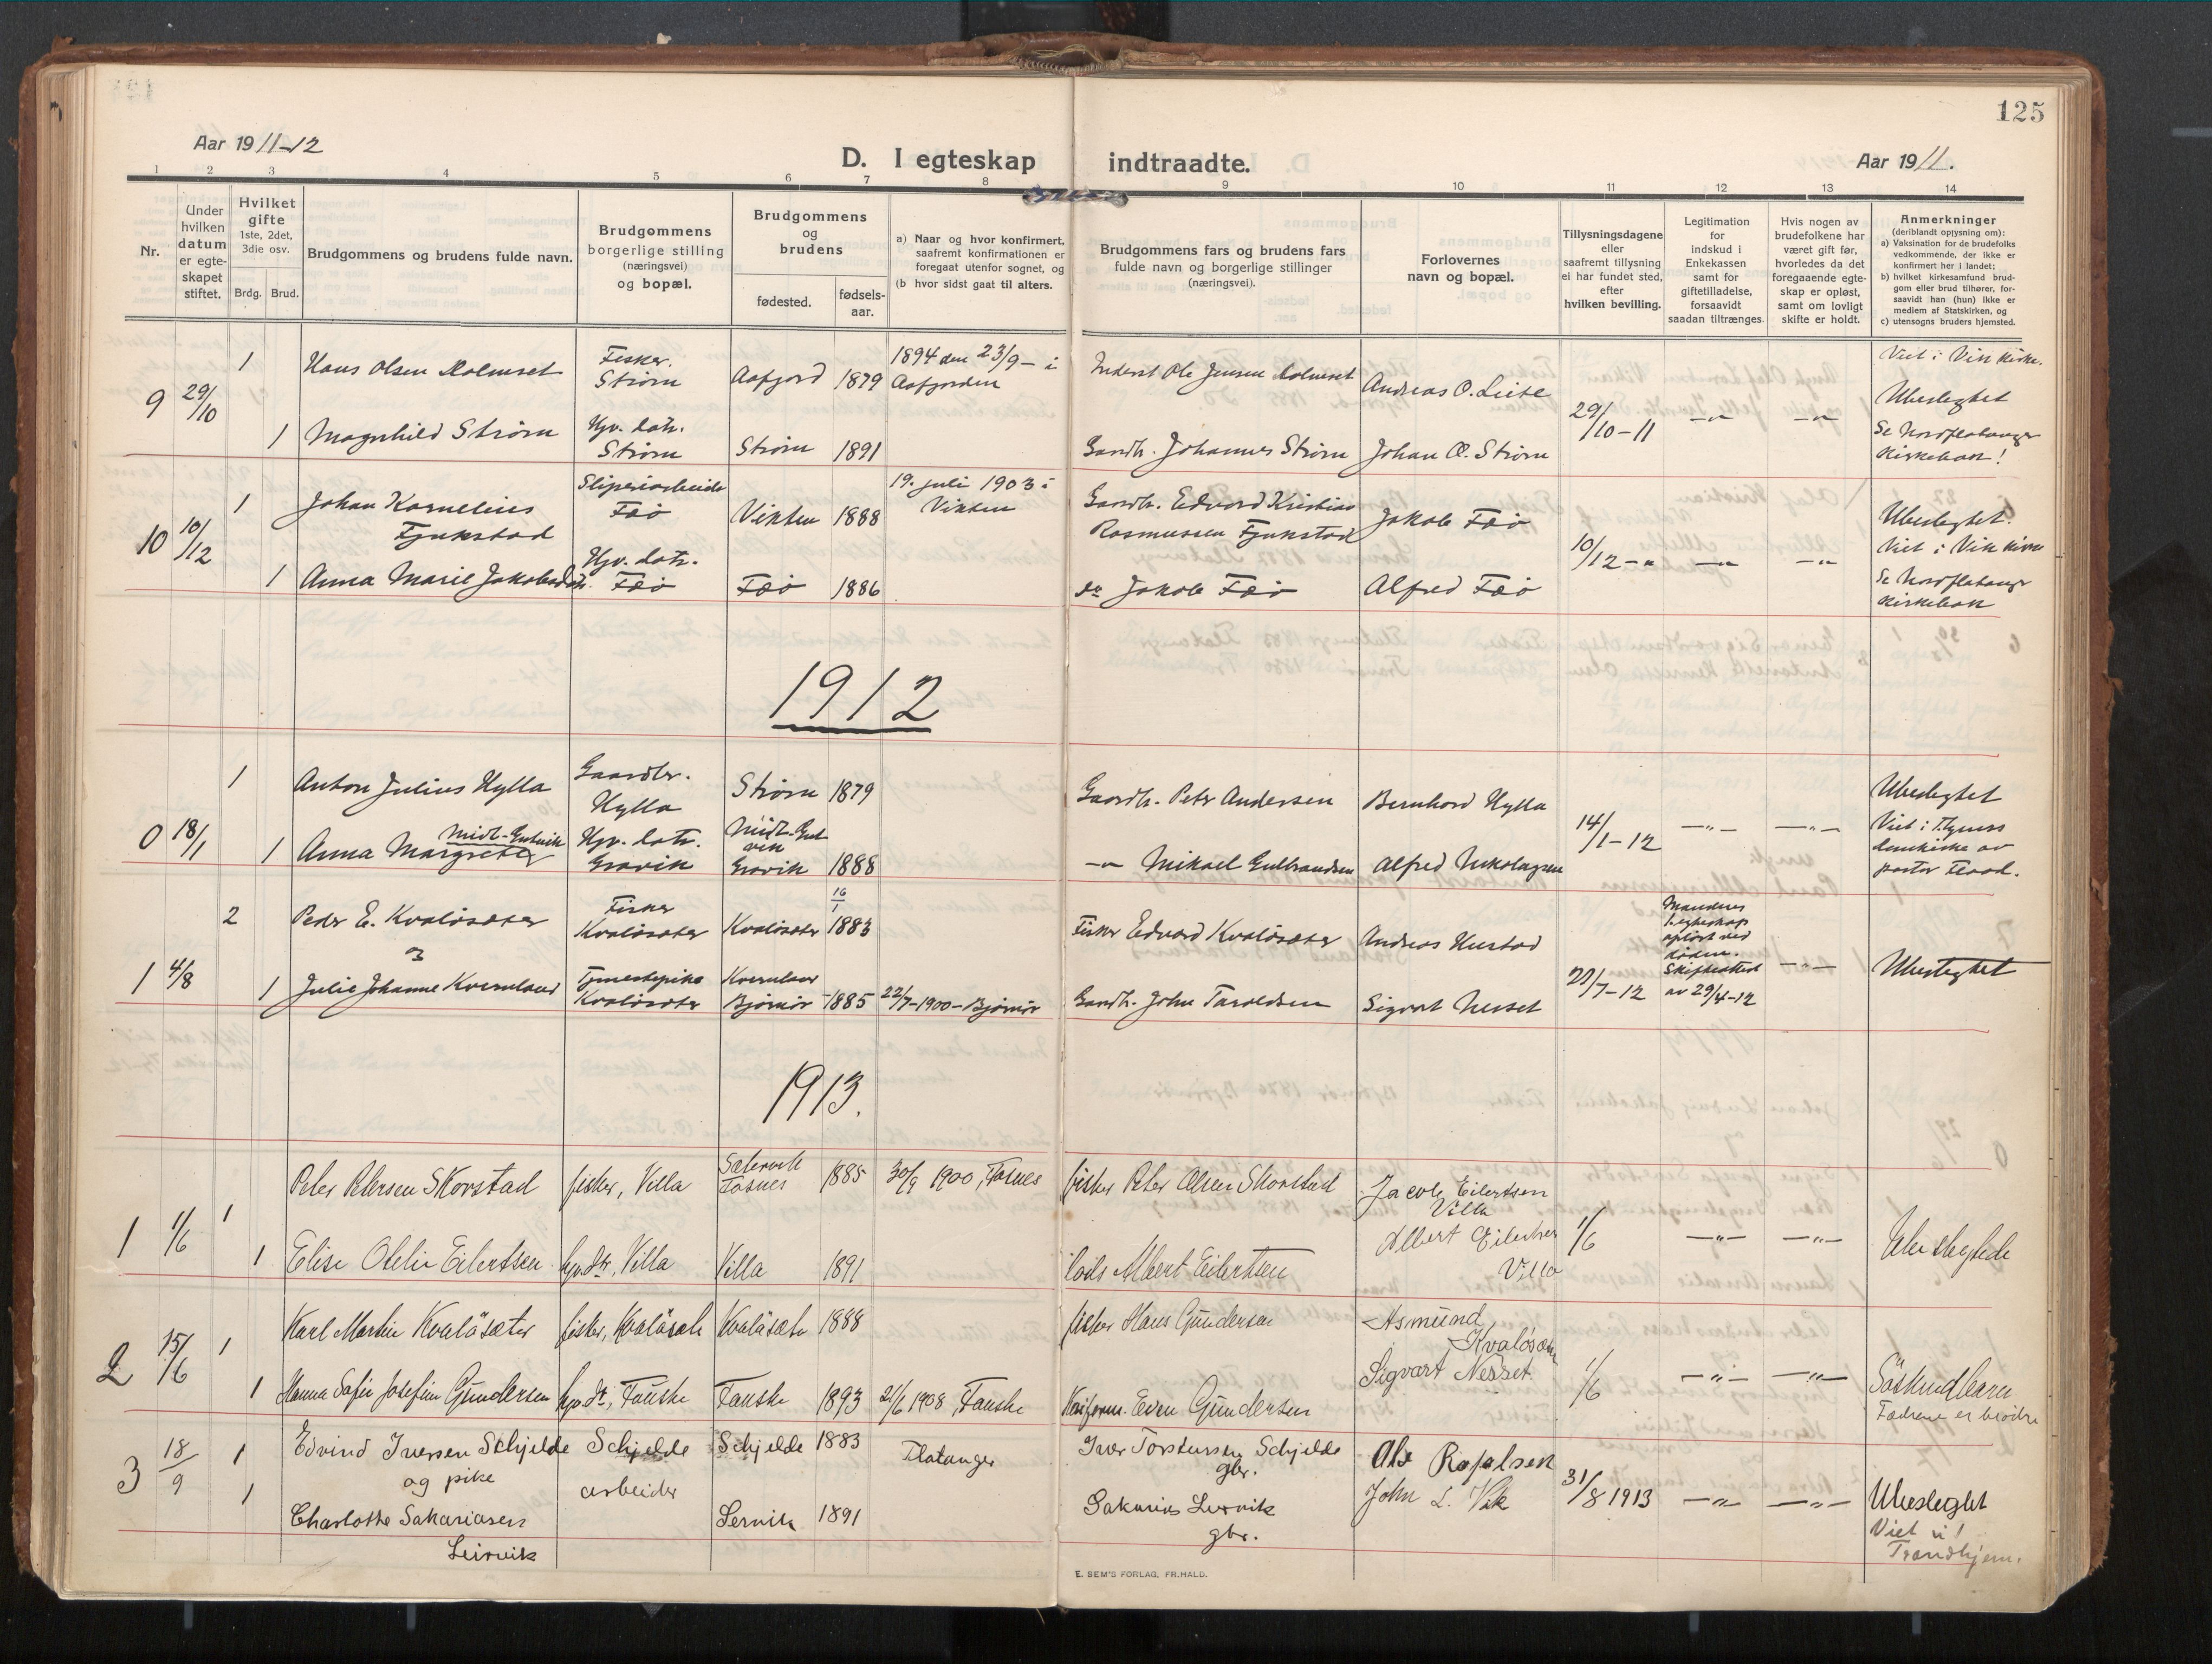 125
Aar 1911-12
D. I egteskap indtraadte.
Aar 1911.
1 2 3 4 5 6 7 8 9 10 11 12 13 14
Nr.
Under hvilken datum er egte-skapet stiftet.
Hvilket gifte 1ste, 2det, 3die osv.
Brdg. Brud.
Brudgommens og brudens fulde navn.
Brudgommens borgerlige stilling (næringsvei) og bopæl.
Brudgommens og brudens
fødested.
fødsels-aar.
a) Naar og hvor konfirmert, saafremt konfirmationen er foregaat utenfor sognet, og
(b hvor sidst gaat til alters.
Brudgommens fars og brudens fars fulde navn og borgerlige stillinger (næringsvei).
Forlovernes navn og bopæl.
Tillysningsdagene eller saafremt tillysning ei har fundet sted, efter hvilken bevilling.
Legitimation for indskud i Enkekassen samt for giftetilladelse, forsaavidt saadan tiltrænges.
Hvis nogen av brudefolkene har været gift før, hvorledes da det foregaaende egte-skap er opløst, samt om lovligt skifte er holdt.
Anmerkninger (deriblandt oplysning om):
a) Vaksination for de brudefolks vedkommende, der ikke er konfirmert her i landet;
b) hvilket kirkesamfund brud-gom eller brud tilhører, for-saavidt han (hun) ikke er medlem af Statskirken, og
c) utensogns bruders hjemsted.
9 29/10 1 Hans Olsen Holmset Fisker. Strøm Aafjord 1879 1894 den 23/9 - i Aafjorden Inderst Ole Jensen Holmset Andreas O. Leite 29/10-11 -"- -"- Viet i Vik kirke. Ubeslegtet
1 Magnhild Strøm Gpr. datr. Strøm Strøm 1891 Gaardb. Johannes Strøm Johan O. Strøm Se Nordflatanger kirkebok!
10 10/12 1 Johan Kornelius Fjukstad Sliperiarbeider Fæø Vikten 1888 19. juli 1903 i Vikten Gaardb. Edvard Kristian Rasmussen Fjukstad Jakob Fæø 10/12 -" -"- -"- Ubeslegtet. Viet i Vik kirke
1 Anna Marie Jakobsdatr. Gpr. datr. Fæø Fæø 1886 do Jakob Fæø Alfred Fæø Se Nordflatanger kirkebok
1912
0 18/1 1 Anton Julius Hylla Gaardbr. Hylla Strøm 1879 Gaardb. Peter Andersen Bernhard Hylla 14/1-12 -"- -"- Ubeslegtet
1 Anna Margrete Midt-Gutvik Gpr. datr. Gravik Midt-Gutvik Gravik 1888 -"- Mikael Gulbrandsen Alfred Nikolaysen Viet i domkirke av pastor Flood.
1 4/8 2 Peder E. Kvaløsæter Fisker Kvaløsæter Kvaløsæter 16/1 1883 Fisker Edvard Kvaløsæter Andreas Hustad 21/7-12 Mandens 1. egteskap opløst ved døden. Skifteattest av 29/4-12 -"- Ubeslegtet
1 Julie Johanne Kvernland Tjenestepike Kvaløsæter Kvernland Bjørnør 1885 22/7-1900-Bjørnør Gaardb. John Taraldsen Sigvart Nesset
1913.
1 1/6 1 Peter Petersen Skorstad fisker, Villa Sætervik Fosnes 1885 30/9 1900, Fosnes fisker Peter Olsen Skorstad Jacob Eilertsen Villa 1/6 -"- -"- Ubeslegtede
1 Elise Otelie Eilertsen gpr. dtr, Villa Villa 1891 lods Albert Eilertsen Albert Eilertsen Villa
2 15/6 1 Karl Martin Kvaløsæter fisker, Kvaløsæter Kvaløsæter 1888 fisker Hans Gundersen Asmund Kvaløsæter 1/6 -"- -"- Søskendbarn
1 Hanna Sofie Josefine Gundersen gpr. dt, Fauske Fauske 1893 21/6 1908, Fauske Even Gundersen Sigvart Nesset Fædrene er brødre
3 18/9 1 Edvind Iversen Schjelde og pike Schjelde arbeider Schjelde 1883 Flatanger Iver Torstensen Schjelde gbr. Ole Rafalsen 31/8 1913 -"- -"- Ubeslegtet
1 Charlotte Sakariasen Leirvik Lervik 1891 Sakarias Lervik gbr. John L. Vik Viet i Trondhjem.
E. SEM'S FORLAG, FR.HALD.